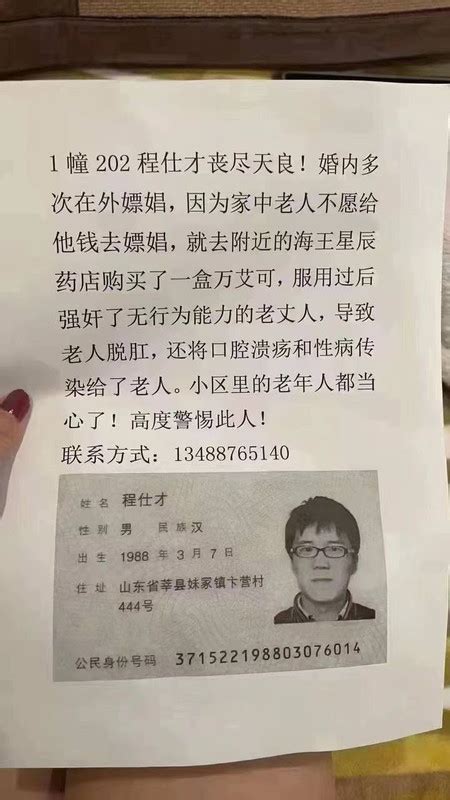 1 幢 202 程仕才丧尽天良！婚内多
次在外嫖娼，因为家中老人不愿给
他钱去嫖娼，就去附近的海王星辰
药店购买了一盒万艾可，服用过后
强奸了无行为能力的老丈人，导致
老人脱肛，还将口腔溃疡和性病传
染给了老人。小区里的老年人都当
心了！高度警惕此人！
联系方式：13488765140
姓名 程仕才
性别 男 民族 汉
出生 1988 年 3 月 7 日
住址 山东省莘县妹冢镇卞营村
444号
公民身份号码 371522198803076014